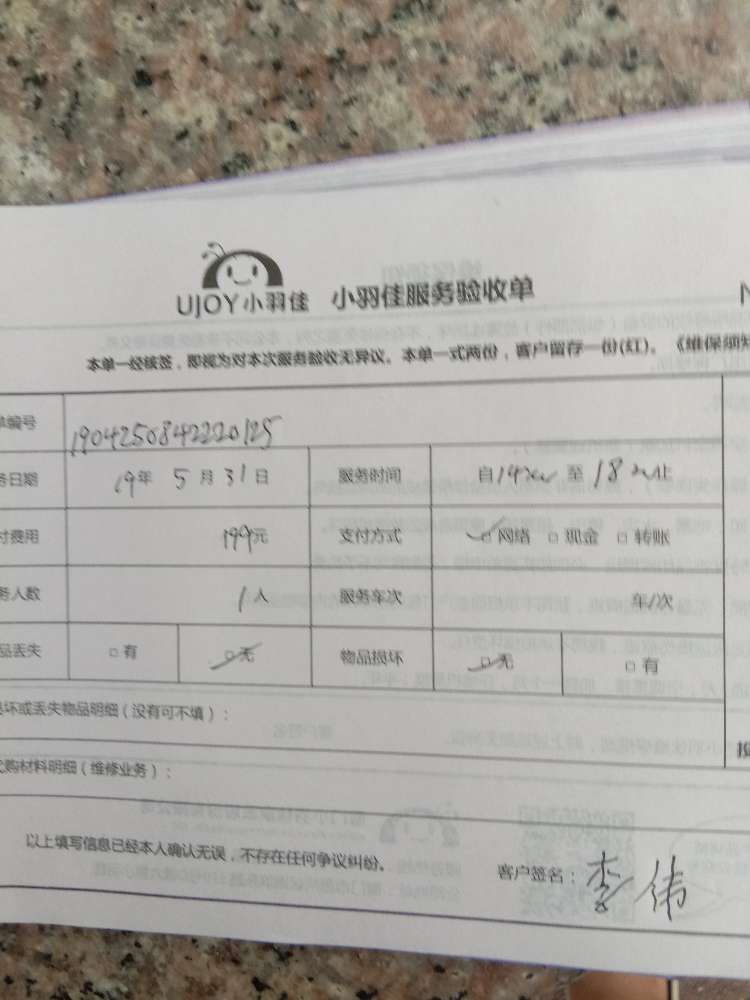 UJOY小羽佳 小羽佳服务验收单
本单一经核签，即视为对本次服务验收无异议。本单一式两份，客户留存一份(红)。《维保须知
单编号 1904250842220125
务日期 19年 5月31日 服务时间 自14 至18 止
付费用 199元 支付方式 网络 现金 转账
务人数 1人 服务车次 车/次
品丢失 有 无 物品损坏 无 有
损坏或丢失物品明细（没有可不填）：
代购材料明细（维修业务）：
以上填写信息已经本人确认无误，不存在任何争议纠纷。 客户签名：李伟